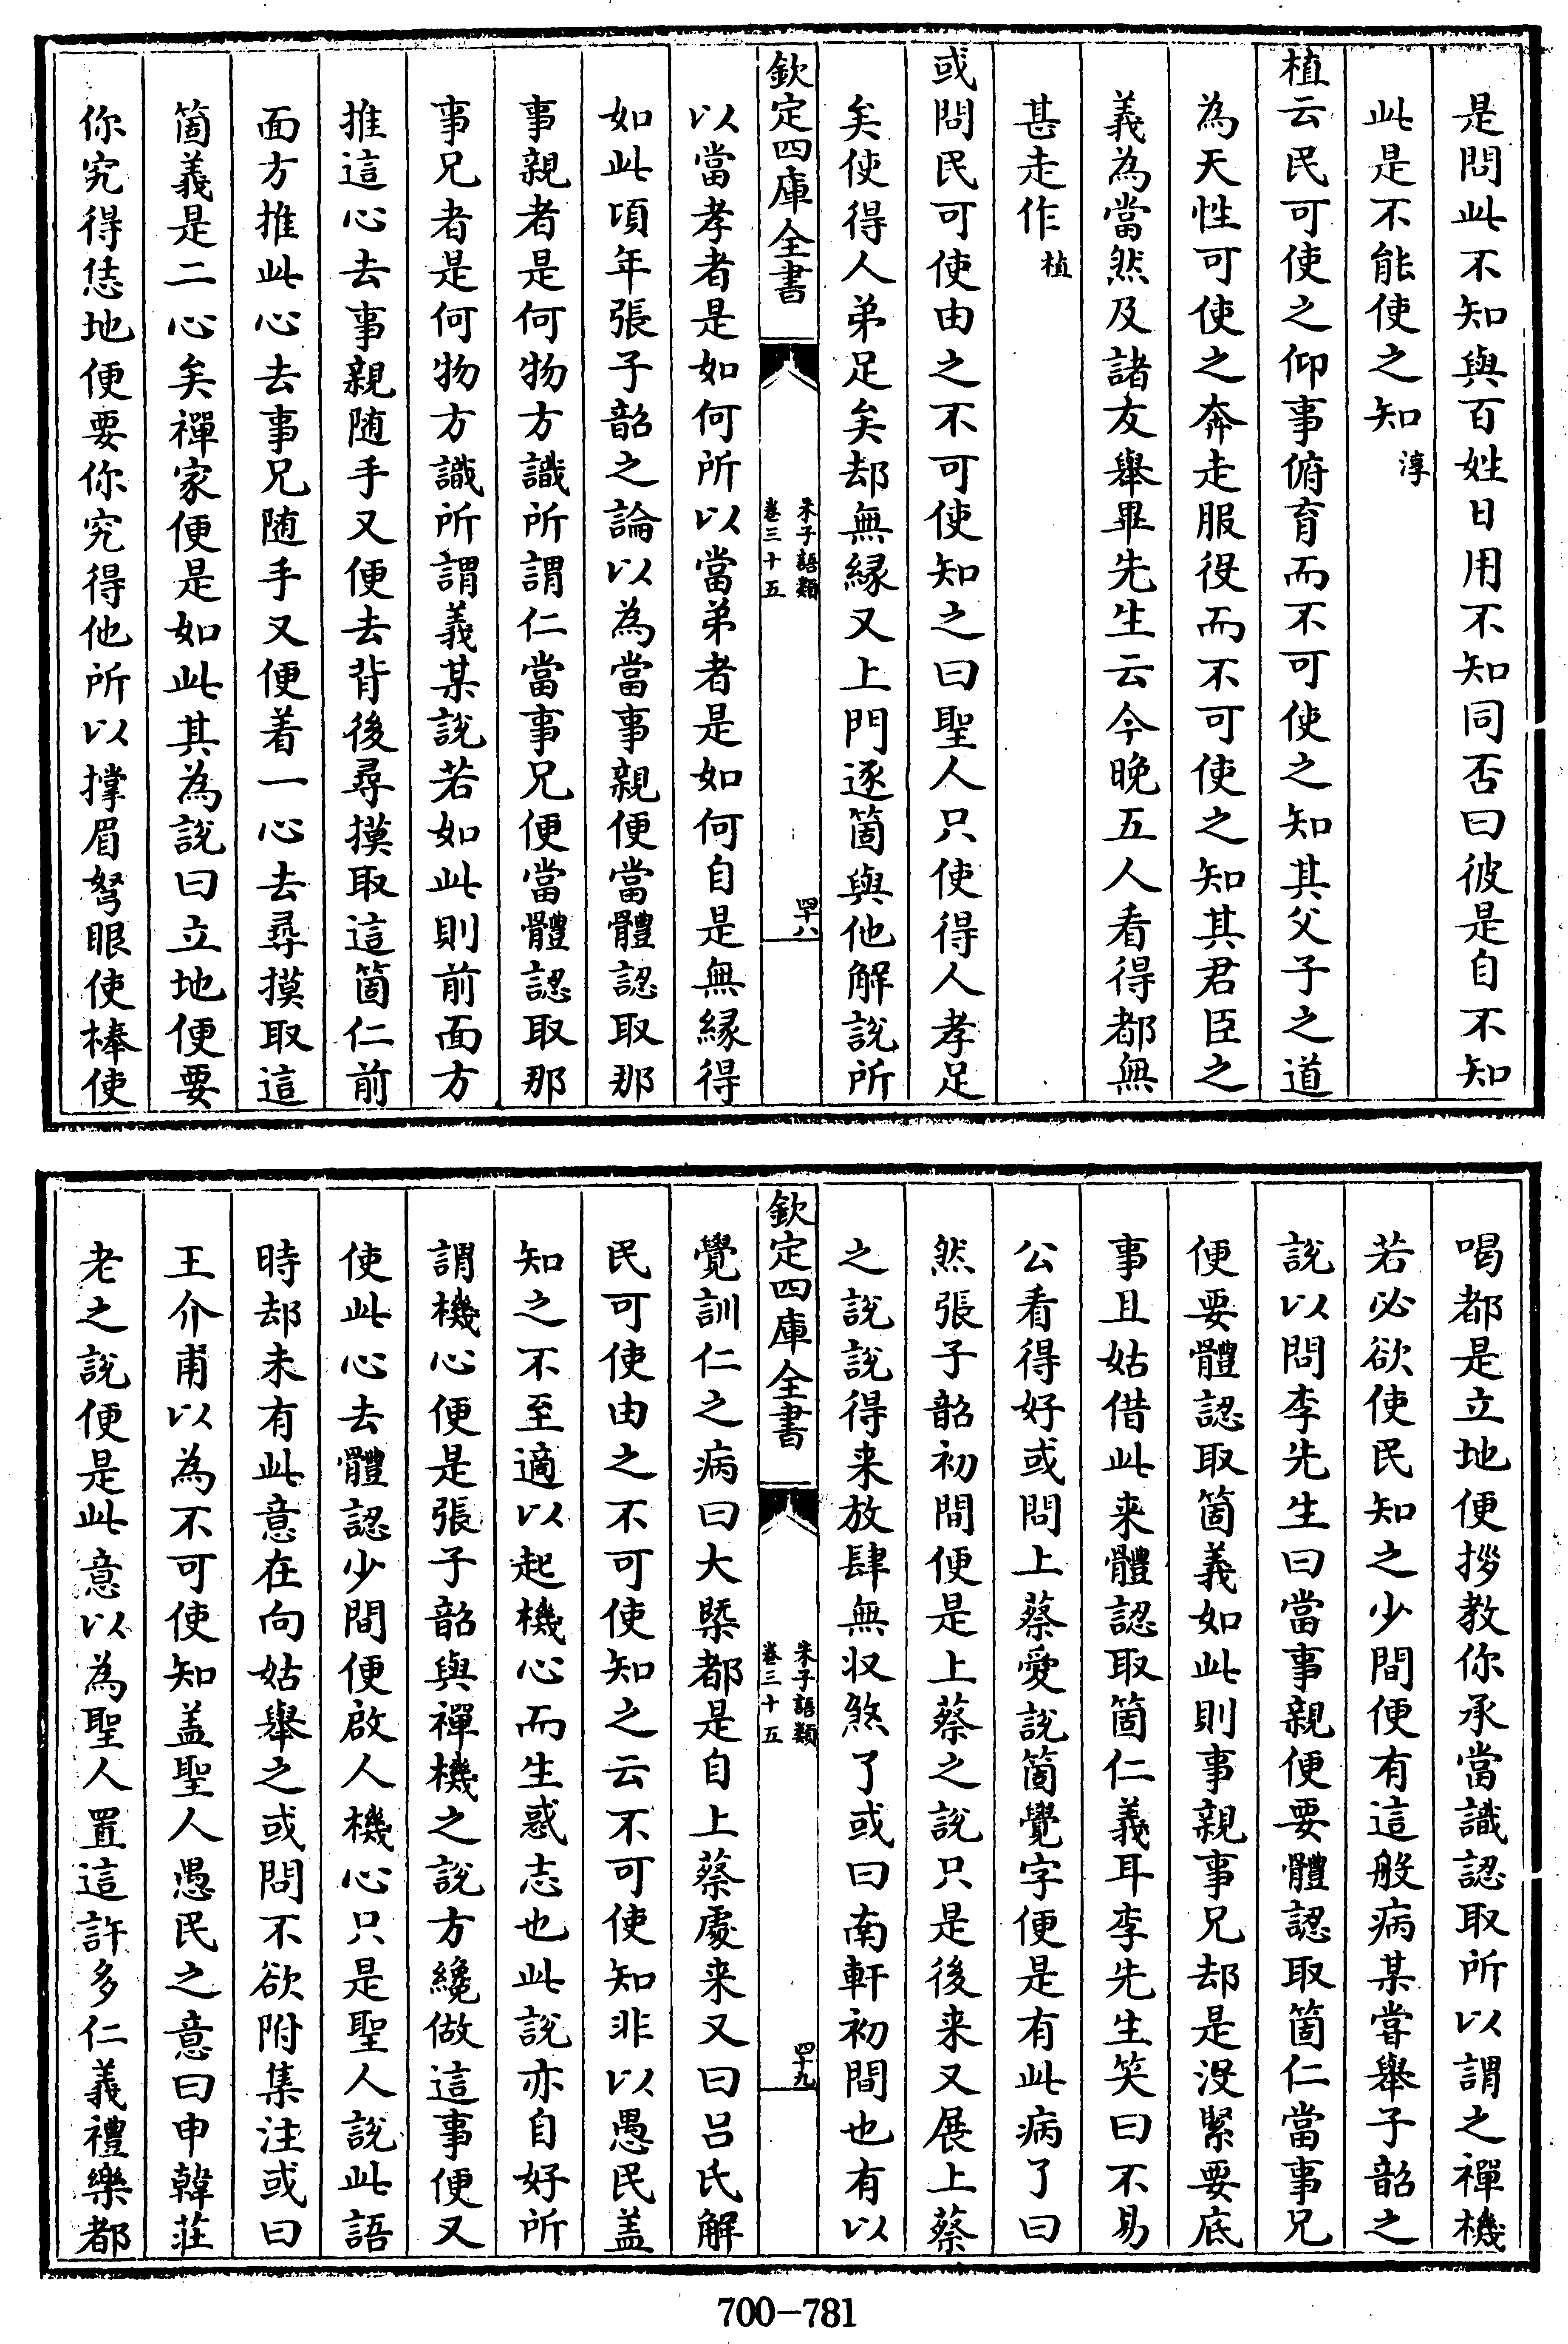 是問此不知與百姓日用不知同否曰彼是自不知
此是不能使之知淳
植云民可使之仰事俯育而不可使之知其父子之道
為天性可使之奔走服役而不可使之知其君臣之
義為當然及諸友舉畢先生云今晚五人看得都無
甚走作植
或問民可使由之不可使知之曰聖人只使得人孝足
矣使得人弟足矣却無緣又上門逐箇與他解說所
欽定四庫全書
朱子語類
卷三十五
四十八
以當孝者是如何所以當弟者是如何自是無緣得
如此頃年張子韶之論以為當事親便當體認取那
事親者是何物方識所謂仁當事兄便當體認取那
事兄者是何物方識所謂義某說若如此則前面方
推這心去事親随手又便去背後尋摸取這箇仁前
面方推此心去事兄随手又便着一心去尋摸取這
箇義是二心矣禪家便是如此其為說曰立地便要
你究得恁地便要你究得他所以撑眉弩眼使棒使
喝都是立地便拶教你承當識認取所以謂之禪機
若必欲使民知之少間便有這般病某嘗舉子韶之
說以問李先生曰當事親便要體認取箇仁當事兄
便要體認取箇義如此則事親事兄却是沒緊要底
事且姑借此来體認取箇仁義耳李先生笑曰不易
公看得好或問上蔡愛說箇覺字便是有此病了曰
然張子韶初間便是上蔡之說只是後来又展上蔡
之說說得来放肆無収煞了或曰南軒初間也有以
欽定四庫全書
朱子語類
卷三十五
四十九
覺訓仁之病曰大槩都是自上蔡處来又曰呂氏解
民可使由之不可使知之云不可使知非以愚民盖
知之不至適以起機心而生惑志也此說亦自好所
謂機心便是張子韶與禪機之說方纔做這事便又
使此心去體認少間便啟人機心只是聖人說此語
時却未有此意在向姑舉之或問不欲附集注或曰
王介甫以為不可使知盖聖人愚民之意曰申韓莊
老之說便是此意以為聖人置這許多仁義禮樂都
700-781